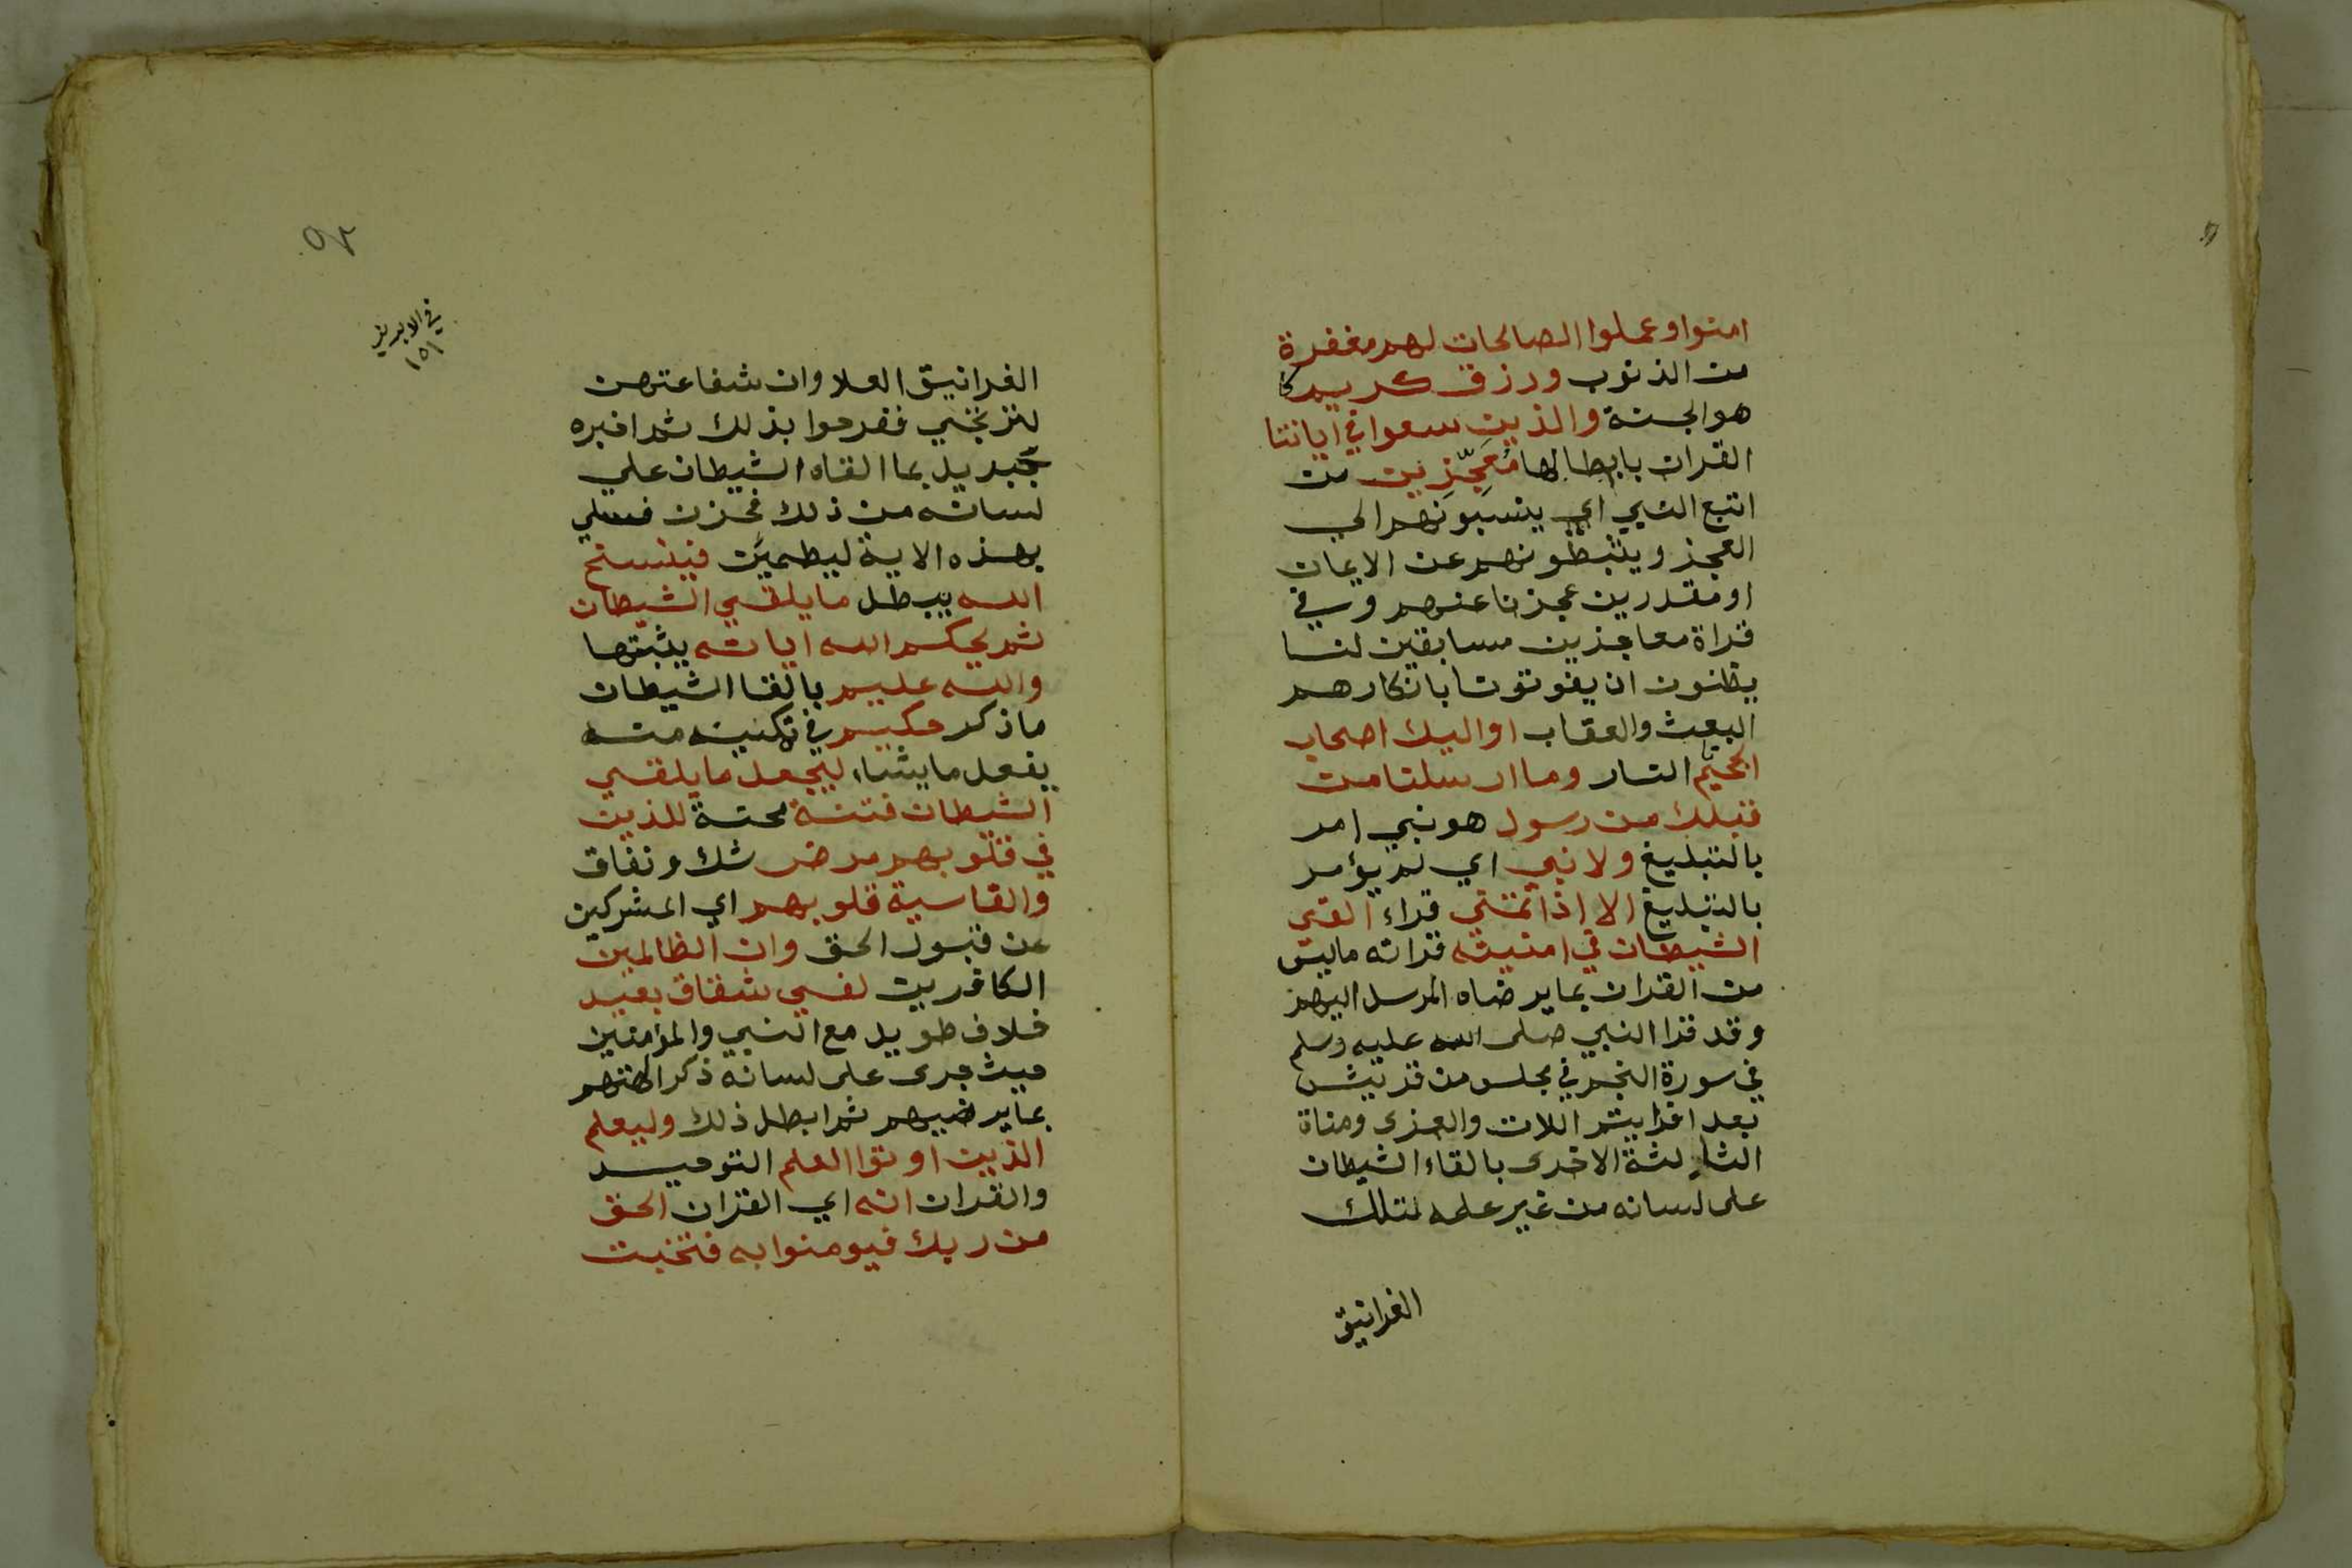 امنوا وعملوا الصالحات لهم مغفرة
من الذنوب ورزق كريم
هو الجنة والذين سعوا في اياتنا
القران بابطالها مُعَجِّزِين من
اتبع النبي اي ينسبونهم الي
العجز ويثبطونهم عن الايمان
او مقدرين عجزنا عنهم وفي
قراة معاجزين مسابقين لنا
يظنون ان يفوتونا بانكارهم
البعث والعقاب اواليك اصحاب
الجحيم النار وما ارسلنا من
قبلك من رسول هو نبي امر
بالتبليغ ولا نبي اي لم يؤمر
بالتبليغ الا اذا تمني قراء القي
الشيطان في امنيته قراته ماليس
من القران بما يرضاه المرسل اليهم
وقد قرا النبي صلى الله عليه وسلم
في سورة النجم في مجلس من قريش
بعد افرايتم اللات والعزى ومناة
الثالثة الاخرى بالقاء الشيطان
على لسانه من غير علمه تلك
الغرانيق
٥٢
في الابريز
١٥١
الغرانيق العلا وان شفاعتهن
لترتجي ففرحوا بذلك ثم اخبره
جبريل بما القاه الشيطان علي
لسانه من ذلك فحزن فسلي
بهذه الاية ليطمين فينسخ
الله يبطل ما يلقي الشيطان
ثم يحكم الله اياته يثبتها
والله عليم بالقا الشيطان
ما ذكر حكيم في تمكينه منه
يفعل ما يشاء ليجعل ما يلقي
الشيطان فتنة محنة للذين
في قلوبهم مرض شك ونفاق
والقاسية قلوبهم اي المشركين
عن قبول الحق وان الظالمين
الكافرين لفي شقاق بعيد
خلاف طويل مع النبي والمؤمنين
حيث جرى على لسانه ذكر الهتهم
بما يرضيهم ثم ابطل ذلك وليعلم
الذين اوتوا العلم التوحيد
والقران انه اي القران الحق
من ربك فيومنوا به فتخبت